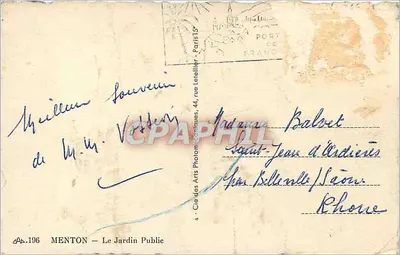 PORT
DE
FRANCE
Meilleur Souvenir
de M. M.
Madame Balvet
Saint-Jean d'Ardières
par Belleville/Saône
Rhone
CPAPHIL
4 - Cie des Arts Photomécaniques, 44, rue Letellier - Paris 15e
196 MENTON – Le Jardin Public